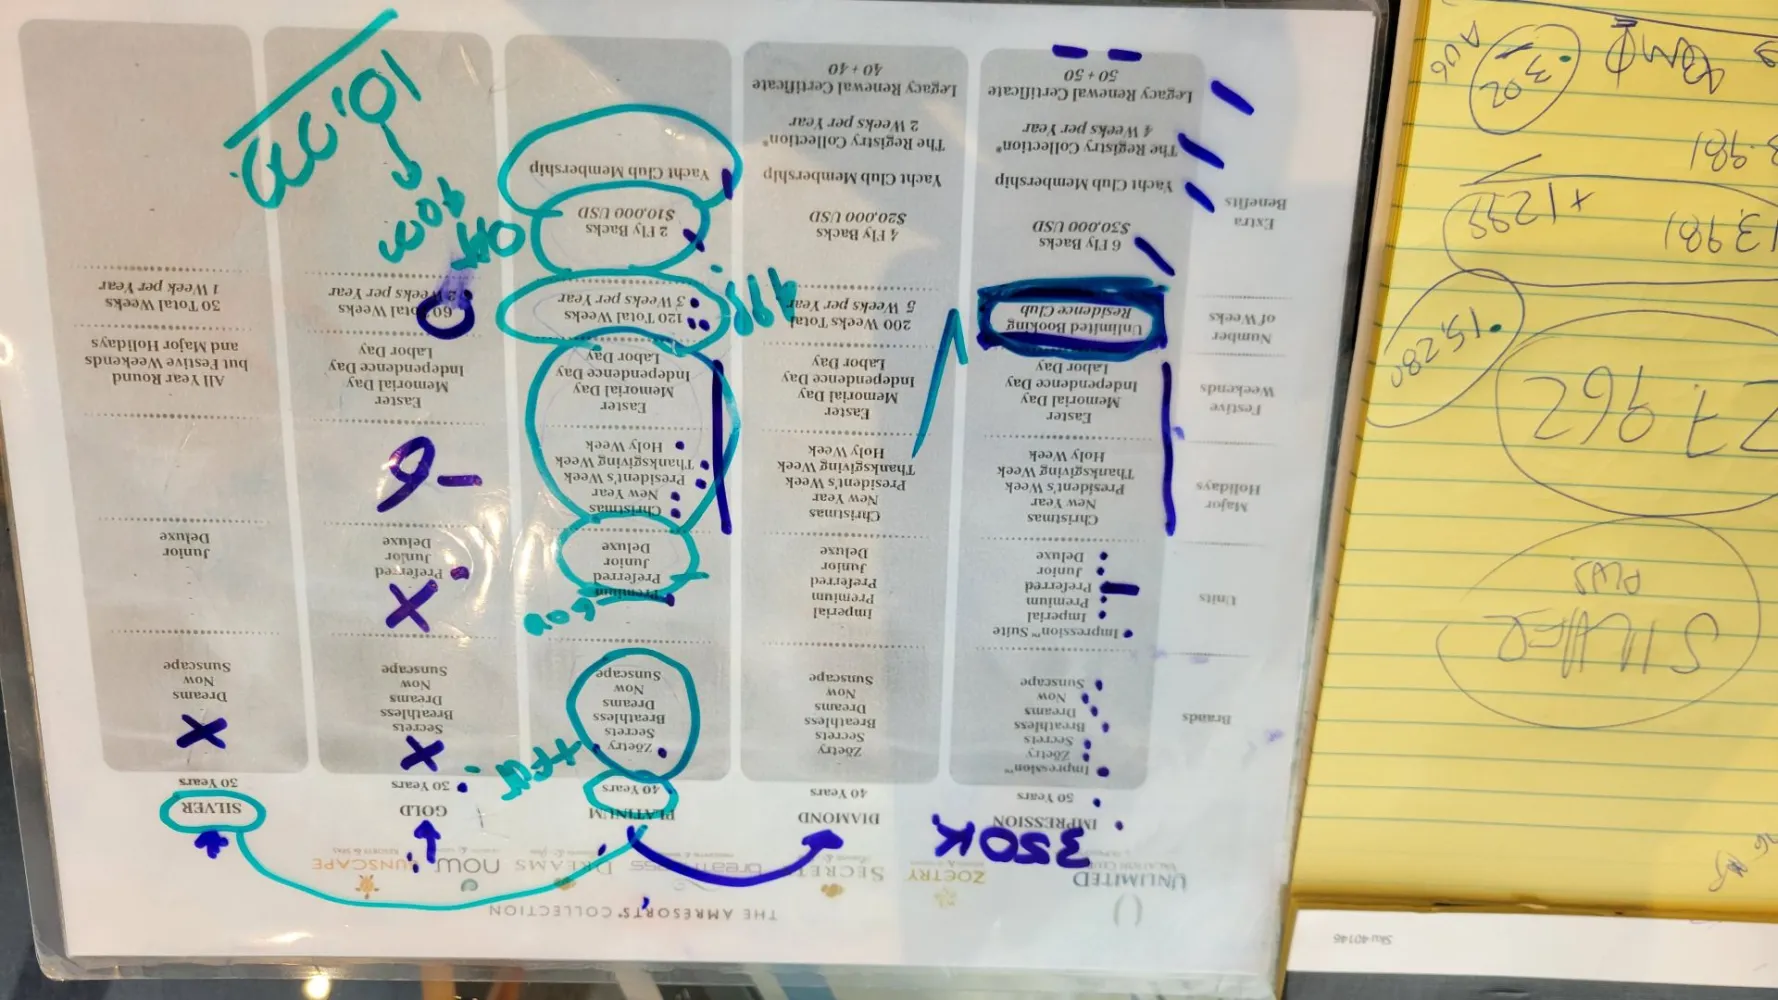 THE AMRESORTS® COLLECTION
UNLIMITED
VACATION CLUB
ZOËTRY
SECRETS
breathless
DREAMS
now
SUNSCAPE
350K
Brands
Units
Major
Holidays
Festive
Weekends
Number
of Weeks
Extra
Benefits
IMPRESSION
50 Years
Impression™
Zöetry
Secrets
Breathless
Dreams
Now
Sunscape
Impression™ Suite
Imperial
Premium
Preferred
Junior
Deluxe
Christmas
New Year
President's Week
Thanksgiving Week
Holy Week
Easter
Memorial Day
Independence Day
Labor Day
Unlimited Booking
Residence Club
6 Fly Backs
$30,000 USD
Yacht Club Membership
The Registry Collection®
4 Weeks per Year
Legacy Renewal Certificate
50 + 50
DIAMOND
40 Years
Zöetry
Secrets
Breathless
Dreams
Now
Sunscape
Imperial
Premium
Preferred
Junior
Deluxe
Christmas
New Year
President's Week
Thanksgiving Week
Holy Week
Easter
Memorial Day
Independence Day
Labor Day
200 Weeks Total
5 Weeks per Year
4 Fly Backs
$20,000 USD
Yacht Club Membership
The Registry Collection®
2 Weeks per Year
Legacy Renewal Certificate
40 + 40
PLATINUM
40 Years
Zöetry
Secrets
Breathless
Dreams
Now
Sunscape
Premium
Preferred
Junior
Deluxe
Christmas
New Year
President's Week
Thanksgiving Week
Holy Week
Easter
Memorial Day
Independence Day
Labor Day
120 Total Weeks
3 Weeks per Year
2 Fly Backs
$10,000 USD
Yacht Club Membership
GOLD
30 Years
Secrets
Breathless
Dreams
Now
Sunscape
Preferred
Junior
Deluxe
Easter
Memorial Day
Independence Day
Labor Day
60 Total Weeks
2 Weeks per Year
SILVER
30 Years
Dreams
Now
Sunscape
Junior
Deluxe
All Year Round
but Festive Weekends
and Major Holidays
30 Total Weeks
1 Week per Year
Sku 40146
SILVER
PLUS
15,280
+1299